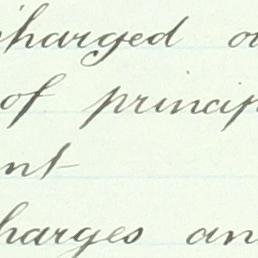 charged o
of princip
nt
harges an